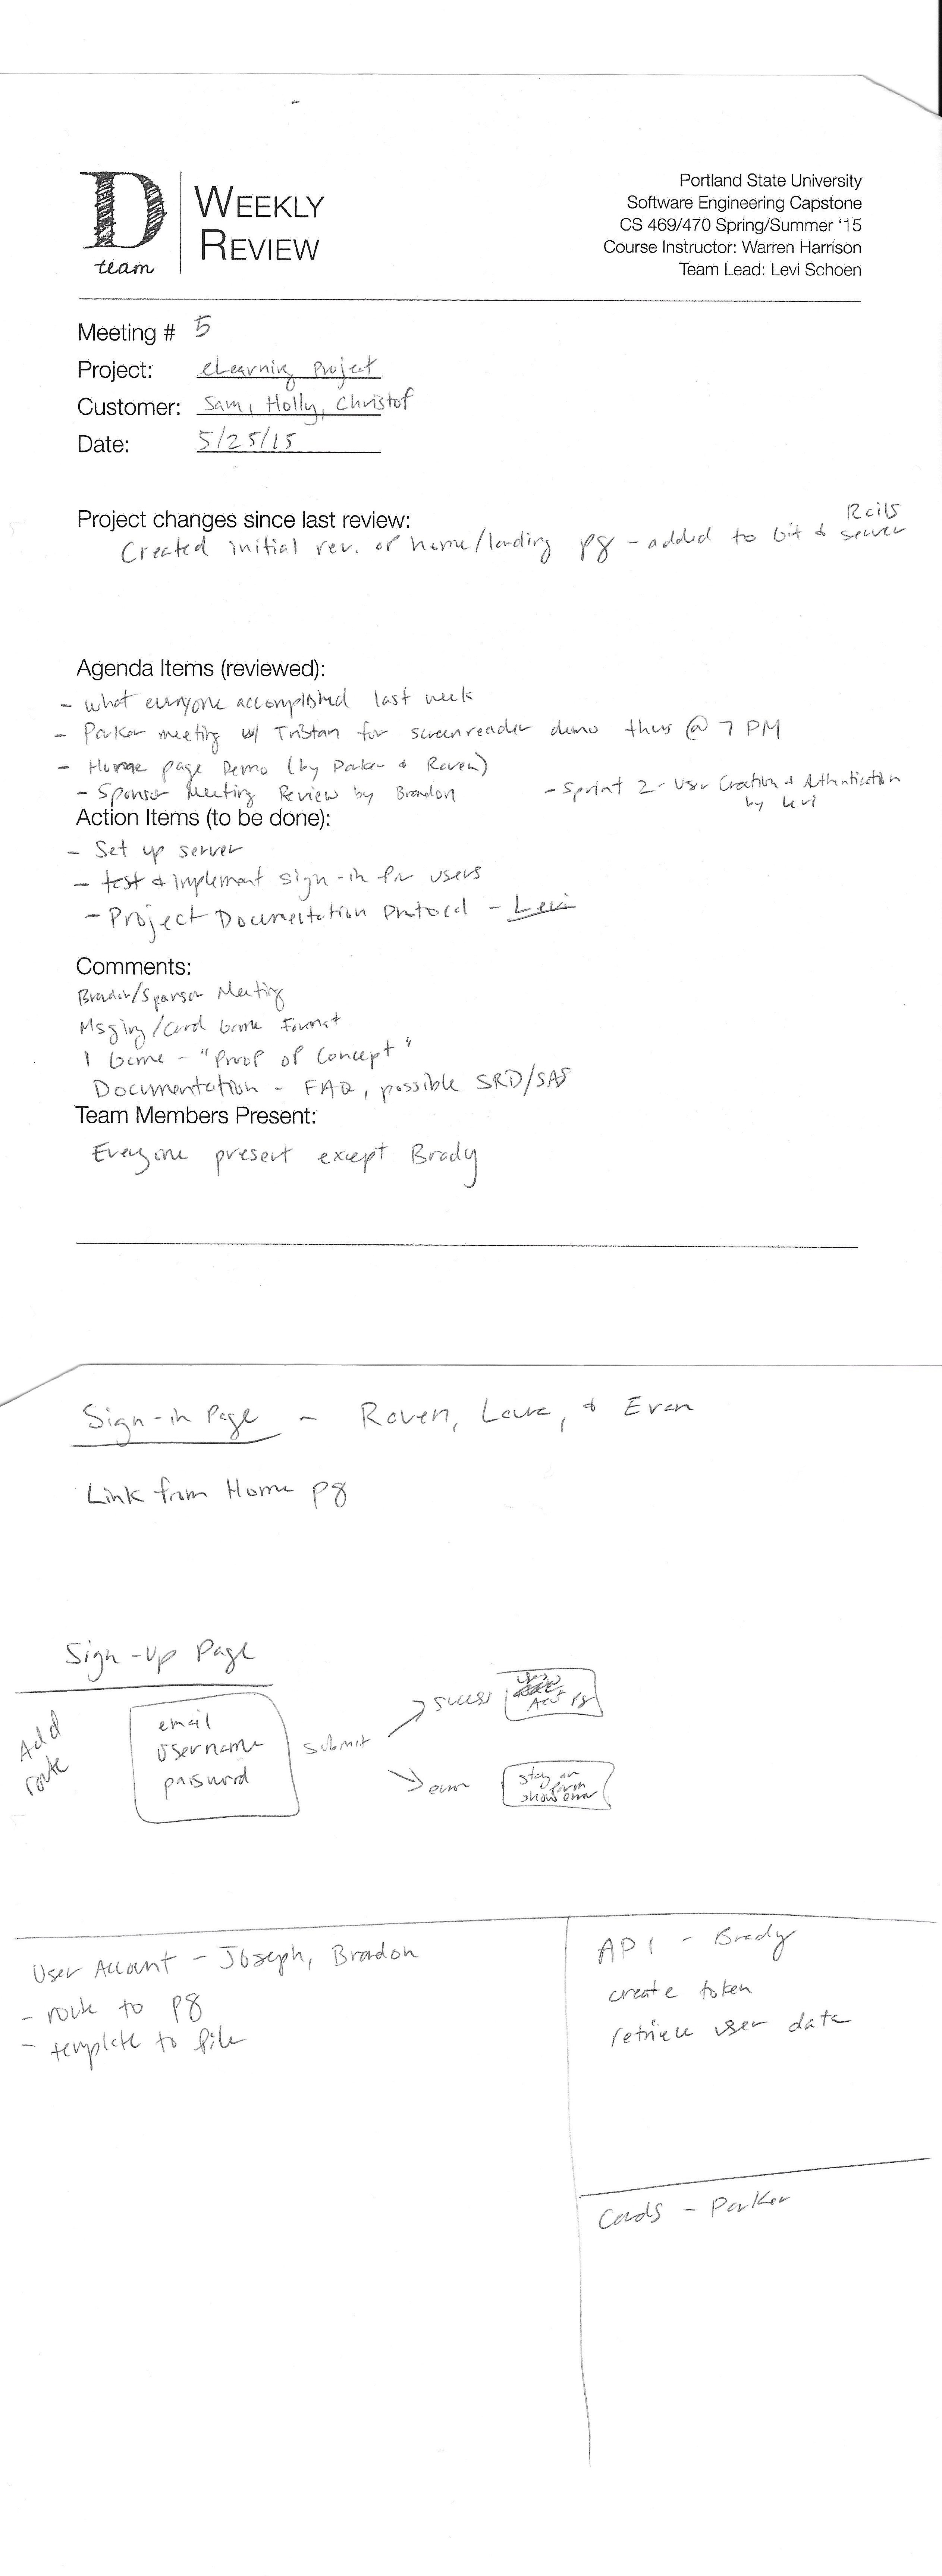 D team
WEEKLY
REVIEW
Portland State University
Software Engineering Capstone
CS 469/470 Spring/Summer '15
Course Instructor: Warren Harrison
Team Lead: Levi Schoen
Meeting # 5
Project: eLearning Project
Customer: Sam, Holly, Christof
Date: 5/25/15
Project changes since last review:
Rails
Created initial rev. of home/landing pg - added to bit & server
Agenda Items (reviewed):
- what everyone accomplished last week
- Parker meeting w/ Tristan for screenreader demo thurs @ 7 PM
- Home page Demo (by Parker & Raven)
- Sponsor Meeting Review by Brandon
- Sprint 2 - User Creation & Athntication
by Levi
Action Items (to be done):
- Set up server
- test & implement sign-in for users
- Project Documentation Protocol - Levi
Comments:
Brandon/Sponsor Meeting
Msging/Card Game Format
1 Game - "Proof of Concept"
Documentation - FAQ, possible SRD/SAS
Team Members Present:
Everyone present except Brady
Sign-in Page - Raven, Laura, & Evan
Link from Home pg
Sign-up Page
Add
route
email
username
password
submit
success
Acct pg
error
stay on
form
show error
User Account - Joseph, Brandon
- route to pg
- template to file
API - Brady
create token
retrieve user data
Cards - Parker